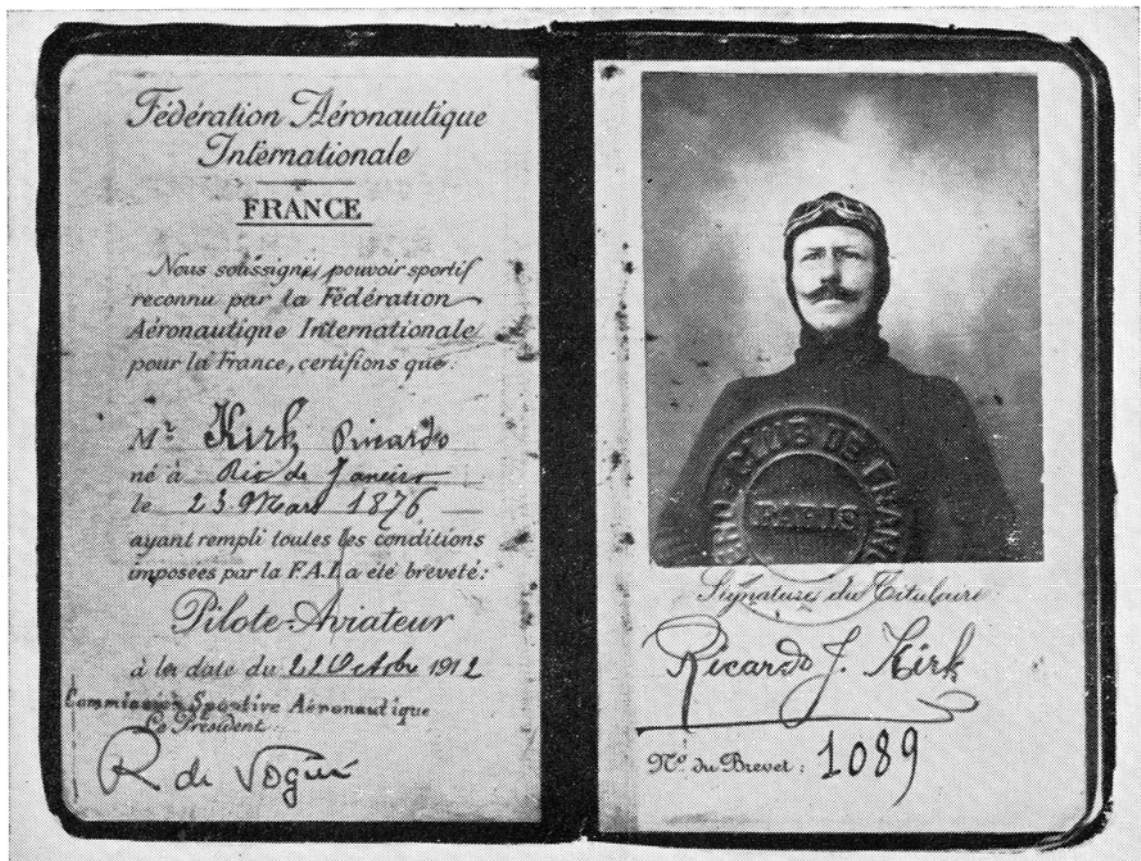 Fédération Aéronautique
Internationale
FRANCE
Nous soussignés, pouvoir sportif
reconnu par la Fédération
Aéronautique Internationale
pour la France, certifions que:
Mr. Kirk Ricardo
né à Rio de Janeiro
le 23 Mars 1876
ayant rempli toutes les conditions
imposées par la F.A.I. a été breveté:
Pilote-Aviateur
à la date du 22 Octobre 1912
Commission Sportive Aéronautique
Le Président
R de Vogüé
AÉRO-CLUB DE FRANCE
PARIS
Signature du Titulaire
Ricardo J. Kirk
No. du Brevet: 1089